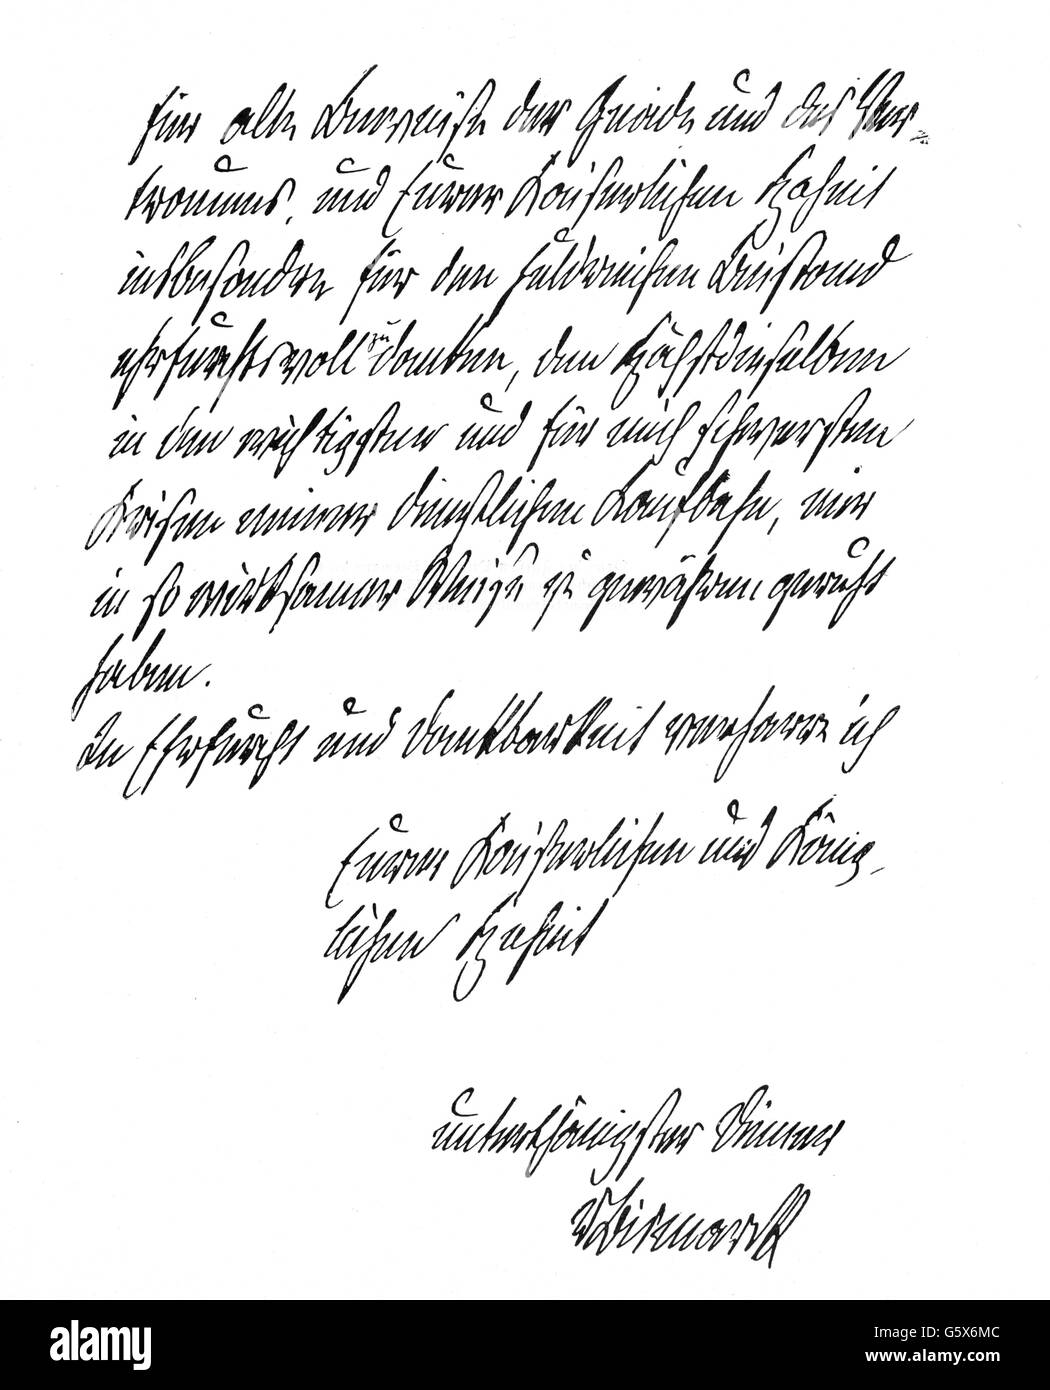 für alle Beweise der Gnade und des Ver-
trauens, und Eurer Kaiserlichen Hoheit
insbesondre für den huldreichen Beistand
ehrfurchtsvoll zu danken, den Höchstdieselben
in den wichtigsten und für mich schwersten
Krisen meiner dienstlichen Laufbahn, mir
in so wirksamer Weise zu gewähren geruht
haben.
In Ehrfurcht und Dankbarkeit verharre ich
Eurer Kaiserlichen und König-
lichen Hoheit
unterthänigster Diener
v Bismarck
a alamy
alamy
Image ID: G5X6MC
www.alamy.com